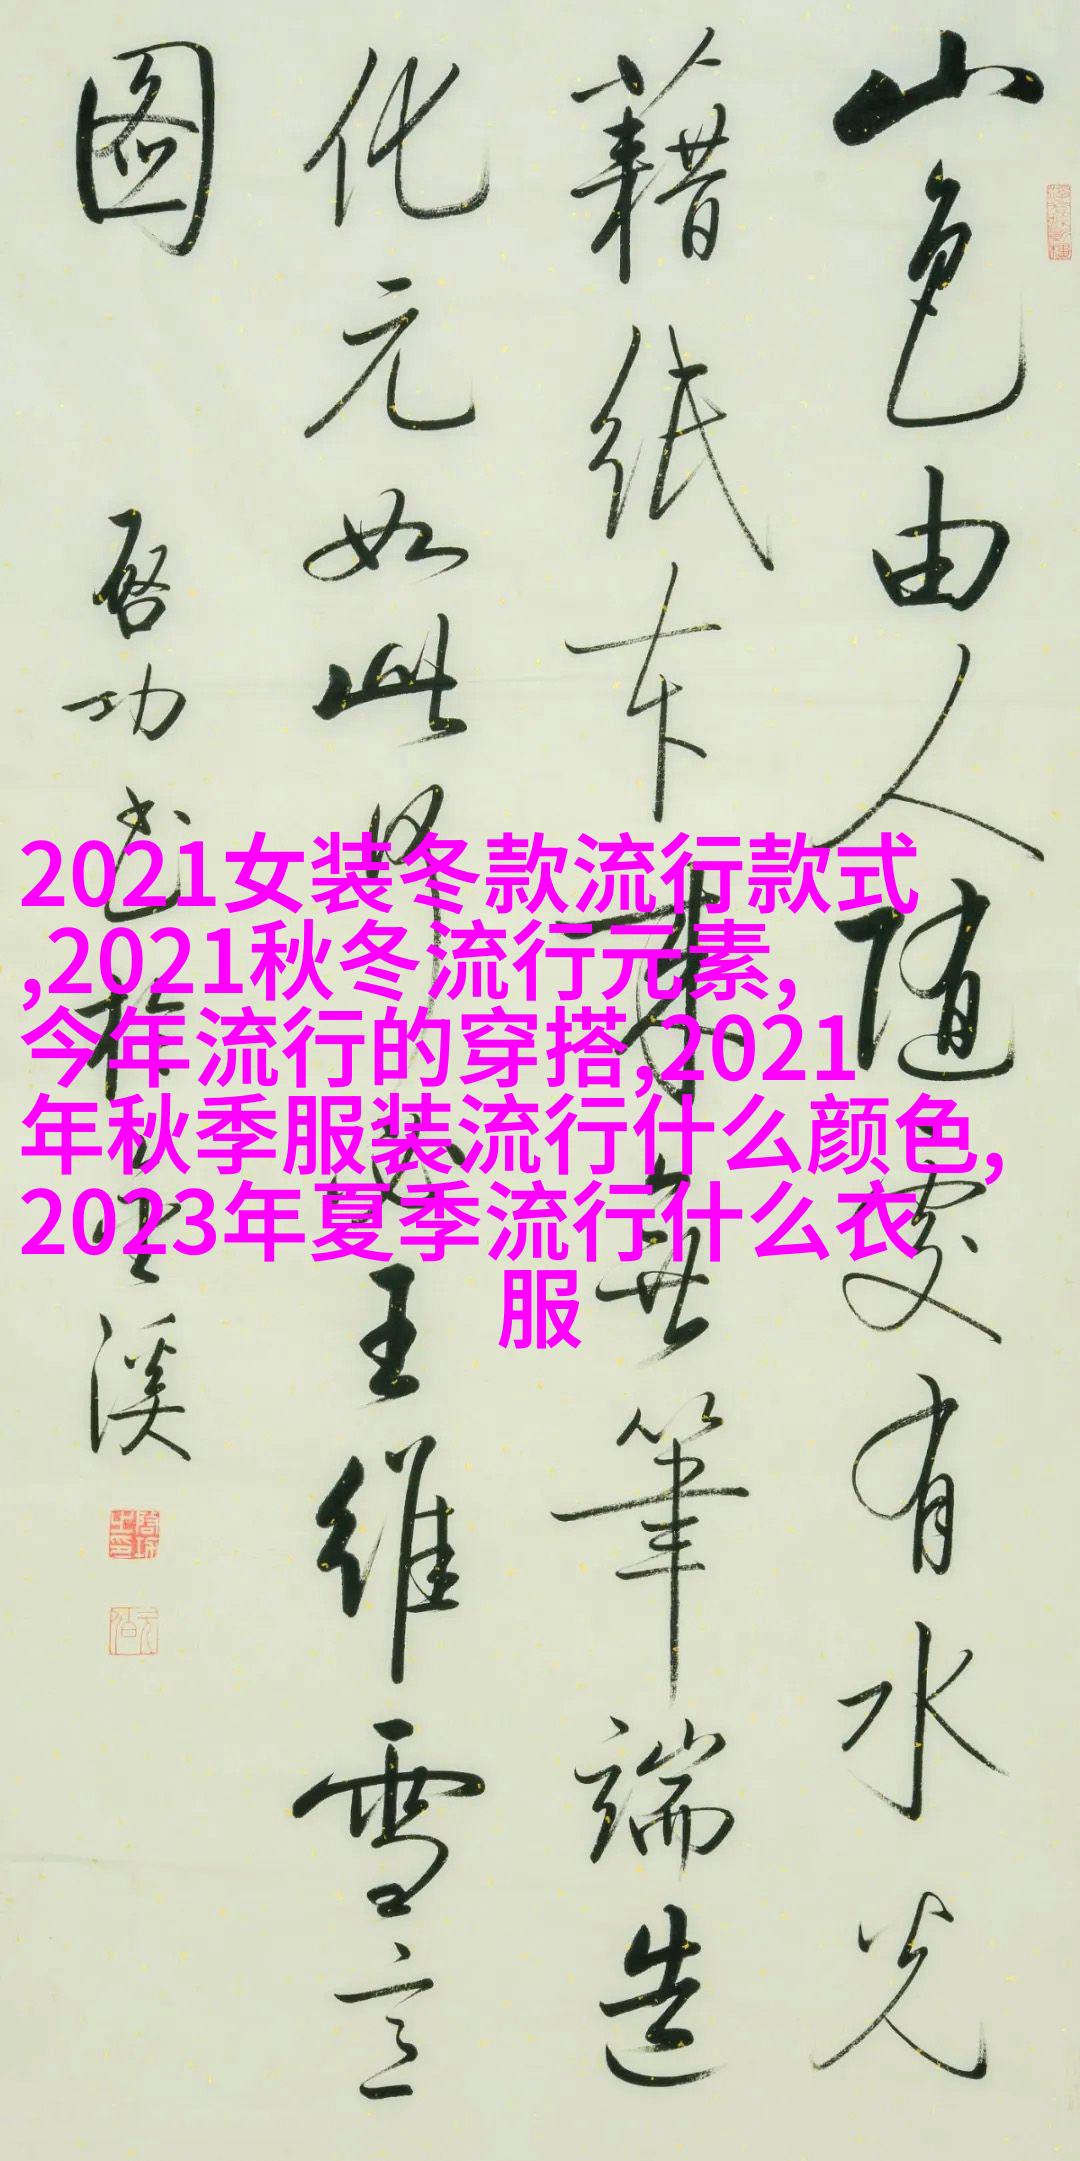 山色由人随處有水光
藉紙本來無筆端造
化元如此王維雪
图
启功
溪
2021女装冬款流行款式
,2021秋冬流行元素,
今年流行的穿搭,2021
年秋季服装流行什么颜色,
2023年夏季流行什么衣
服